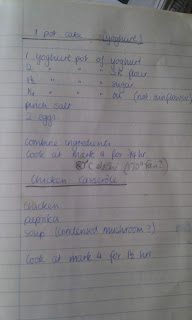 1 pot cake (yoghurt)
1 yoghurt pot of yoghurt
2 " " " SR flour
1½ " " " sugar
¼ " " " oil (not sunflower)
pinch salt
2 eggs
combine ingredients
cook at mark 4 for hr
(170° fan?)
Chicken Casserole
chicken
paprika
soup (condensed mushroom?)
cook at mark 4 for 1½ hr